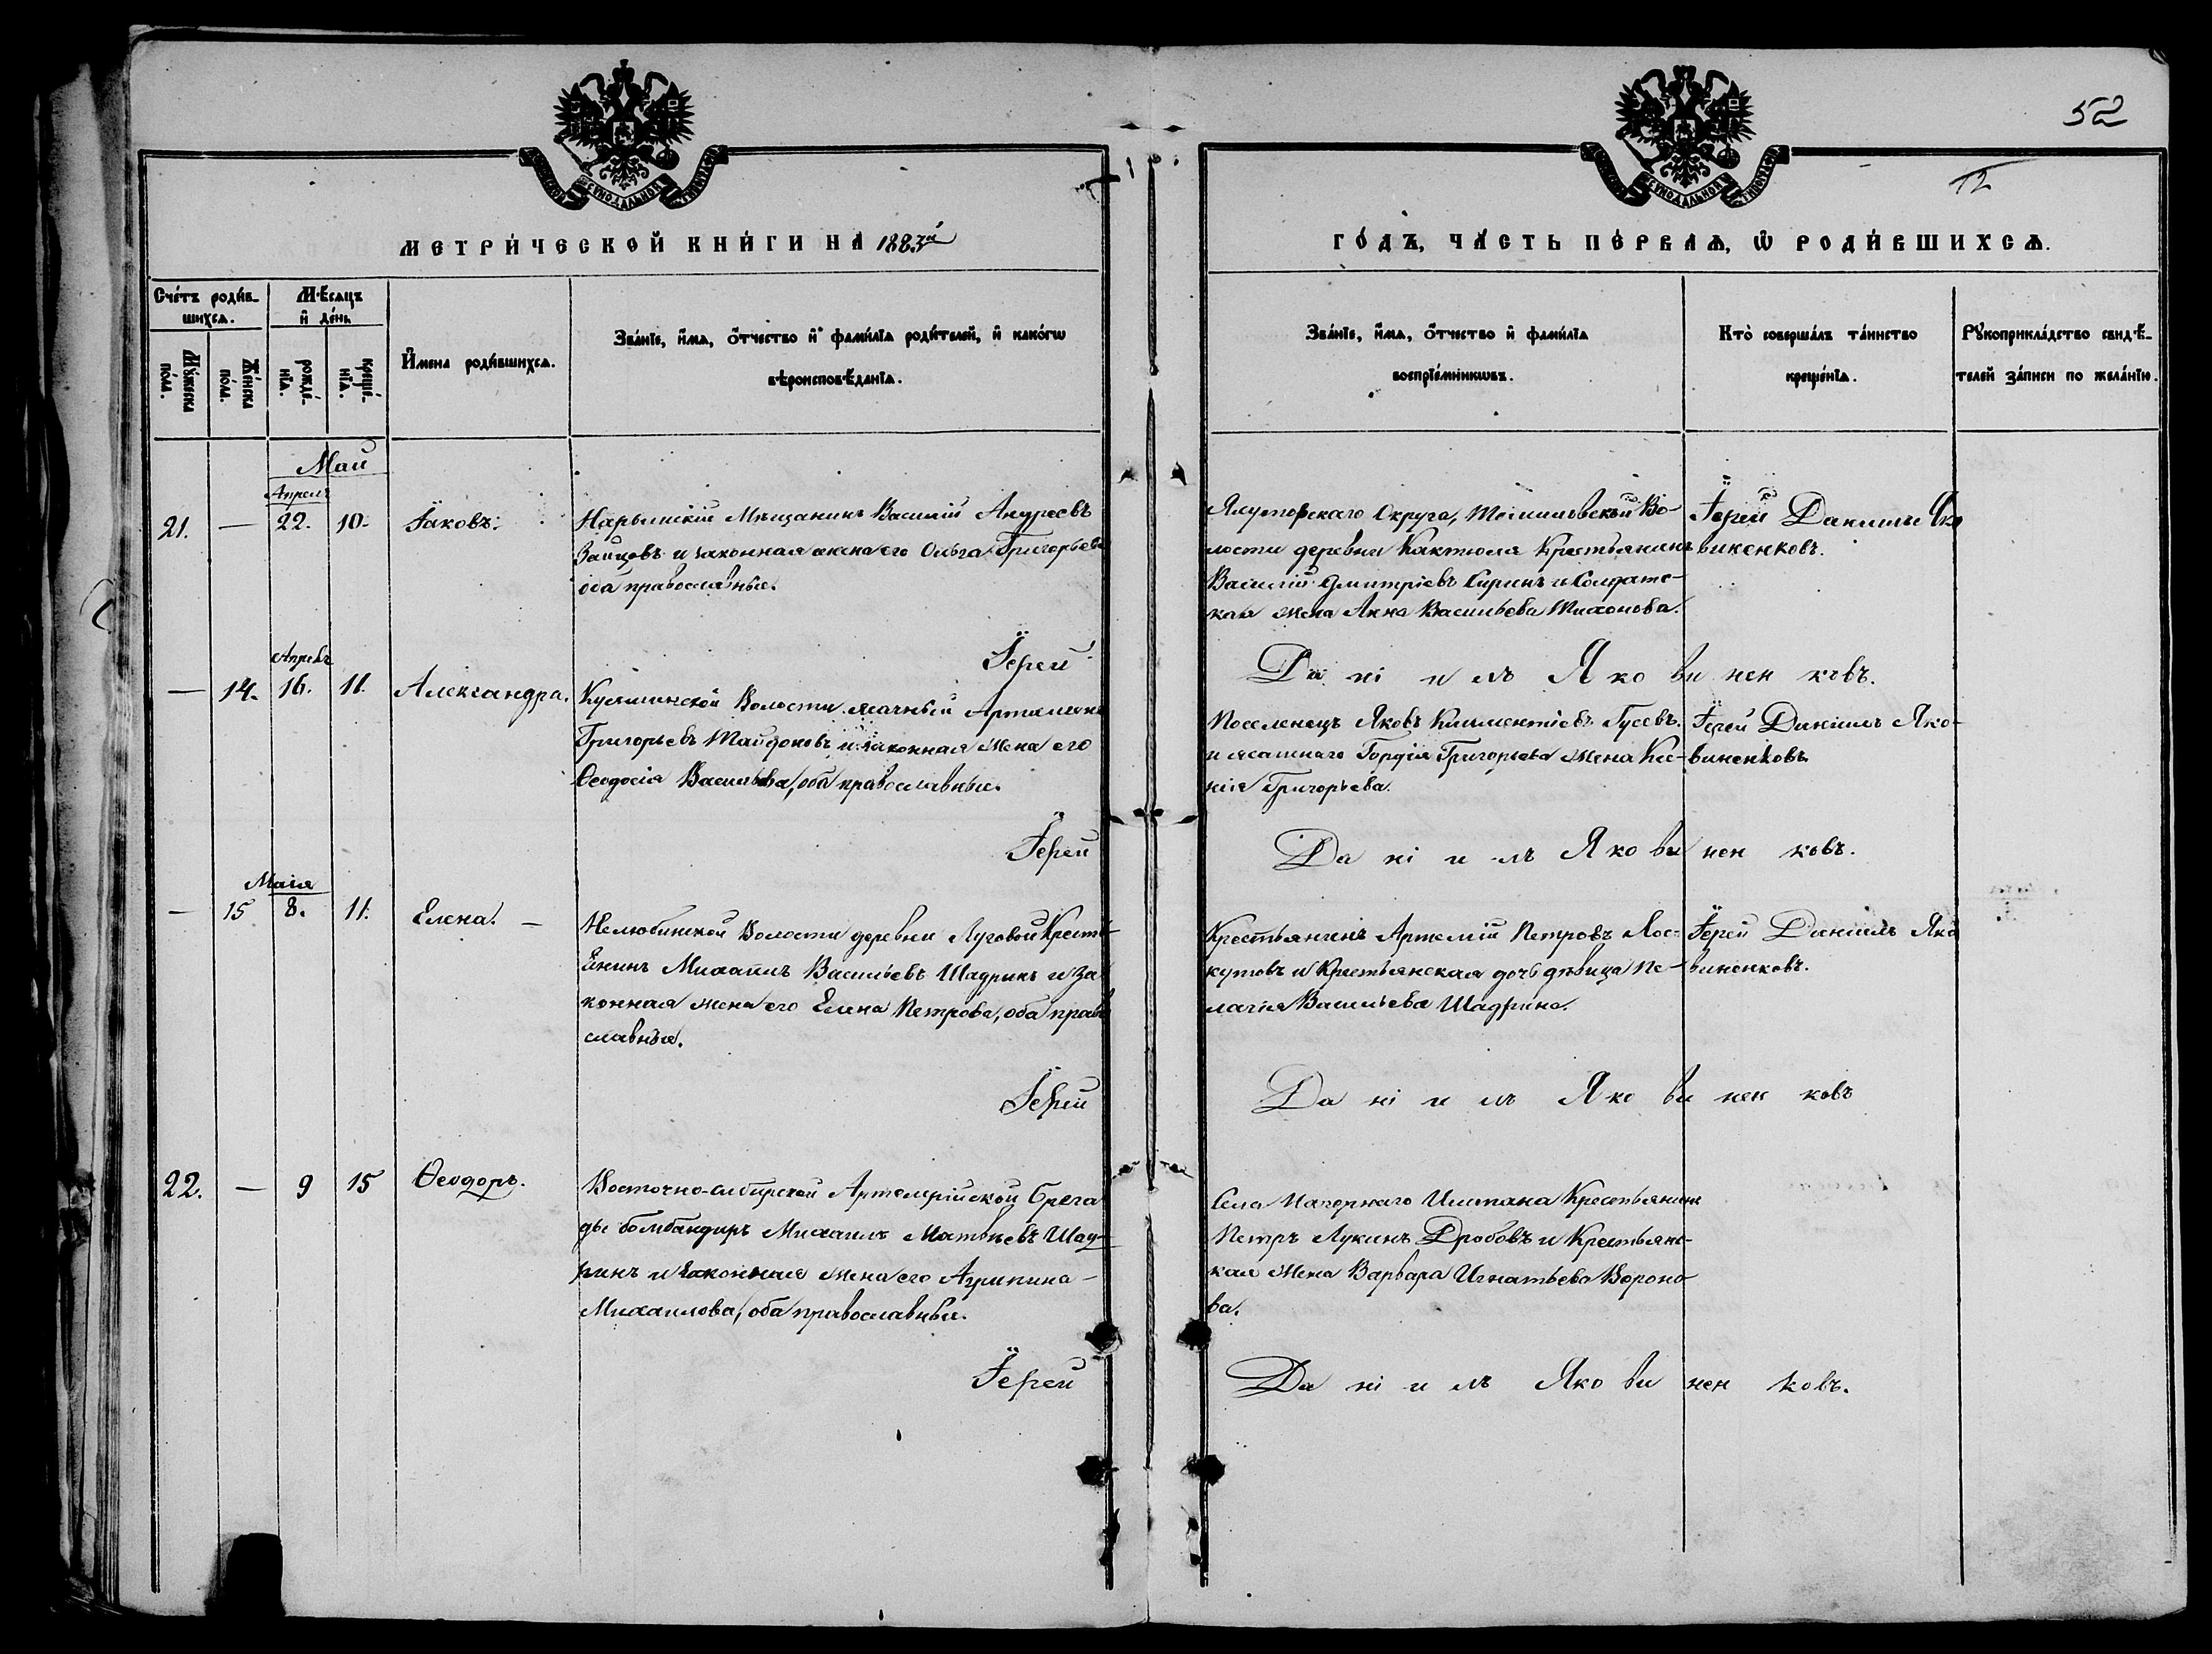 52
12
МЕТРИ́ЧЕСКОЙ КНИ́ГИ НА 1883й
ГО́ДЪ, ЧА́СТЬ ПЕ́РВАѦ, Ѽ РОДИ́ВШИХСѦ.
Сче́тъ роди́в-
шихсѧ.
Мѣ́сѧцъ
и҆ де́нь
Мꙋ́жеска
по́ла.
Же́нска
по́ла.
рожде́-
нїѧ.
креще́-
нїѧ.
И҆мена роди́вшихсѧ.
Зва́нїе, и҆́мѧ, ѻ҆́тчество и҆ фами́лїѧ роди́телей, и҆ како́гѡ
вѣроисповѣ́данїѧ.
Зва́нїе, и҆́мѧ, ѻ҆́тчество и҆ фами́лїѧ
воспрїе́мникѡвъ.
Кто̀ соверша́лъ та́инство
креще́нїѧ.
Рꙋкоприкла́дство свидѣ́-
телей за́писи по жела́нїю.
Май
Апрель
21. — 22. 10. Іаковъ.
Нарымскій Мѣщанинъ Василій Андреевъ
Зайцовъ и законная жена его Ольга Григорьева
оба православные.
Округа, Во-
лости деревни Кактюля Крестьянинъ
Василій Дмитріевъ Сиринъ и Солдатс-
кая жена Анна Васильева Тихонова.
Іерей Даніилъ Яко
виненковъ.
Іерей Даніилъ Яковиненковъ.
Апрель
— 14. 16. 11. Александра.
Волости ясачный Артамонъ
Григорьевъ Тайдоновъ и законная жена его
Ѳеодосія Васильева, оба православные.
Поселенецъ Яковъ Климентіевъ Гусевъ.
и ясашнаго Гордія Григорьева жена Ксе-
нія Григорьева.
Іерей Даніилъ Яко-
виненковъ
Іерей Даніилъ Яковиненковъ.
Маія
— 15 8. 11. Елена. —
Нелюбинской Волости деревни Луговой Кресть-
енинъ Михаилъ Васильевъ Шадринъ и за
конная жена его Елена Петрова, оба право
славные.
Крестьянинъ Артемій Петровъ Лос-
кутовъ и Крестьянская дочь дѣвица Пе-
лагія Васильева Шадрина.
Іерей Даніилъ Яко
виненковъ.
Іерей Даніилъ Яковиненковъ
22. — 9 15 Ѳеодоръ.
Восточно-сибирской Артелерійской Брега
ды бомбандиръ Михаилъ Матвѣевъ Шад-
ринъ и законная жена его Агрипина —
Михаилова, оба православные.
Села Нагорнаго Иштана Крестьянинъ
Петръ Лукинъ Дробовъ и Крестьянс-
кая жена Варвара Игнатьева Вороно
ва.
Іерей Даніилъ Яковиненковъ.